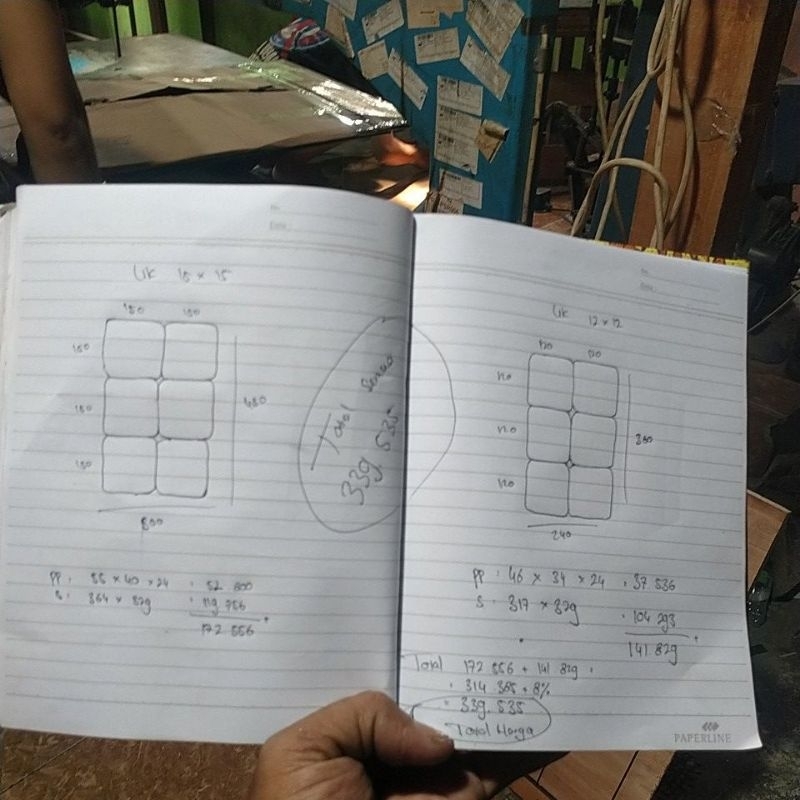 Uk 15 x 15
150 150
150
150
450
150
300
PP : 55 x 40 x 24 : 52 800
S : 364 x 329 : 119 756
172 556
+
Total Semua
339.535
Uk 12 x 12
120 120
120
120
360
120
240
PP : 46 x 34 x 24 : 37 536
S : 317 x 329 : 104 293
+
141 829
Total 172 556 + 141 829 :
: 314 385 + 8%
= 339.535
Total Harga
PAPERLINE